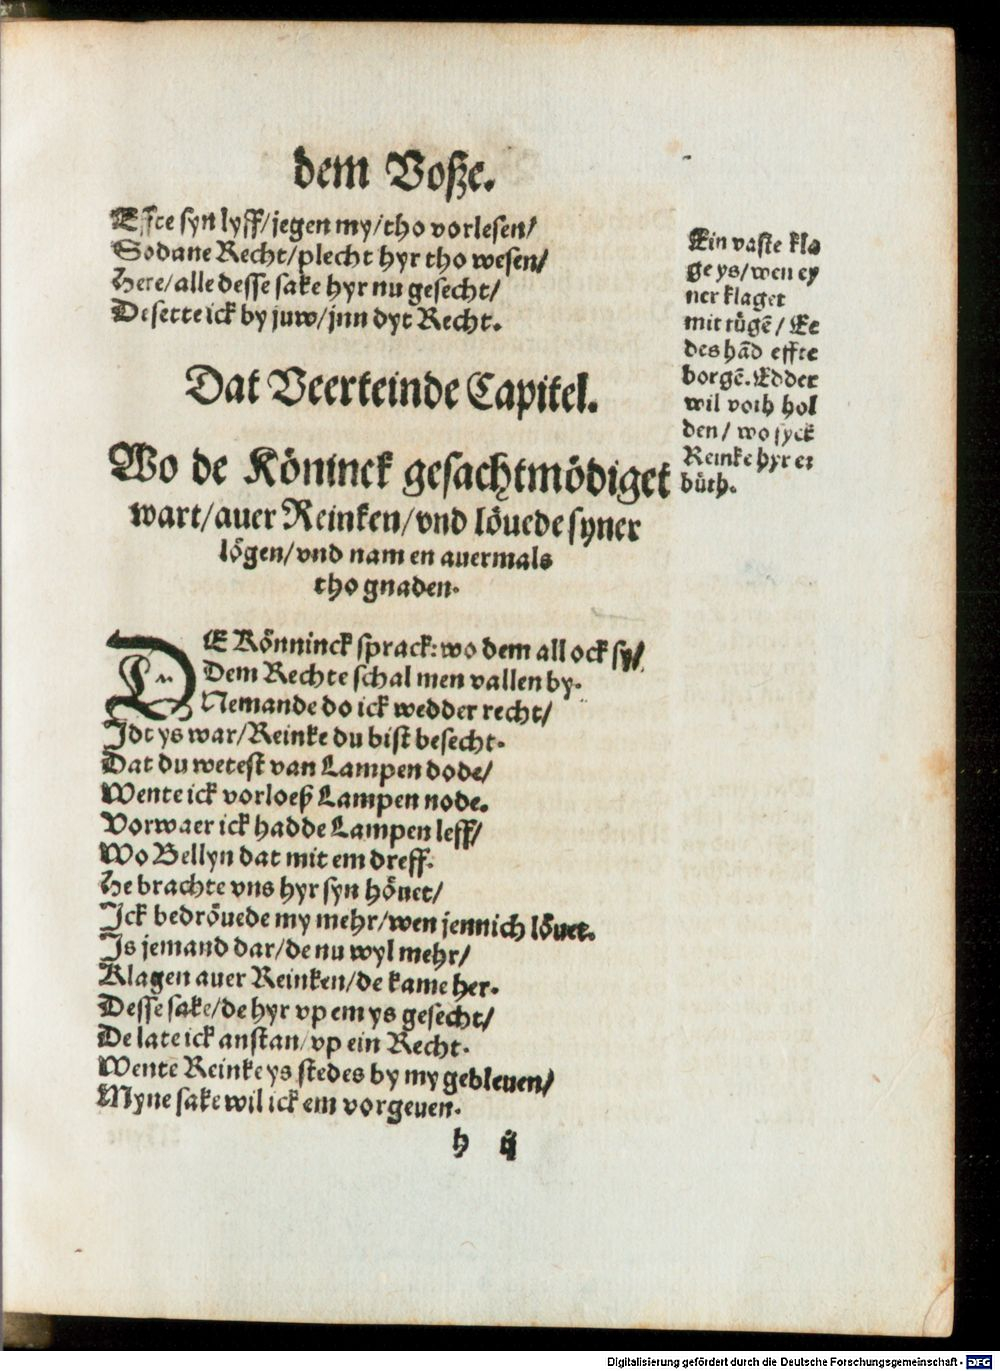 dem Voße.
Effte syn lyff/jegen my/tho vorlesen/
Sodane Recht/plecht hyr tho wesen/
Here/alle desse sake hyr nu gesecht/
De sette ick by juw/jnn dyt Recht.
Ein vaste kla
ge ys/wen ey
ner klaget
mit tügē/ Ee
des hād effte
borgē. Edder
wil voth hol
den/ wo syck
Reinke hyr er
büth.
Dat Veerteinde Capitel.
Wo de Köninck gesachtmödiget
wart/auer Reinken/vnd löuede syner
lögen/vnd nam en auermals
tho gnaden.
DE Könninck sprack: wo dem all ock sy/
Dem Rechte schal men vallen by.
Nemande do ick wedder recht/
Idt ys war/Reinke du bist besecht.
Dat du wetest van Lampen dode/
Wente ick vorloeß Lampen node.
Vorwaer ick hadde Lampen leff/
Wo Bellyn dat mit em dreff.
He brachte vns hyr syn höuet/
Ick bedröuede my mehr/wen jennich löuet.
Is jemand dar/de nu wyl mehr/
Klagen auer Reinken/de kame her.
Desse sake/de hyr vp em ys gesecht/
De late ick anstan/vp ein Recht.
Wente Reinke ys stedes by my gebleuen/
Myne sake wil ick em vorgeuen.
h ij
Digitalisierung gefördert durch die Deutsche Forschungsgemeinschaft - DFG